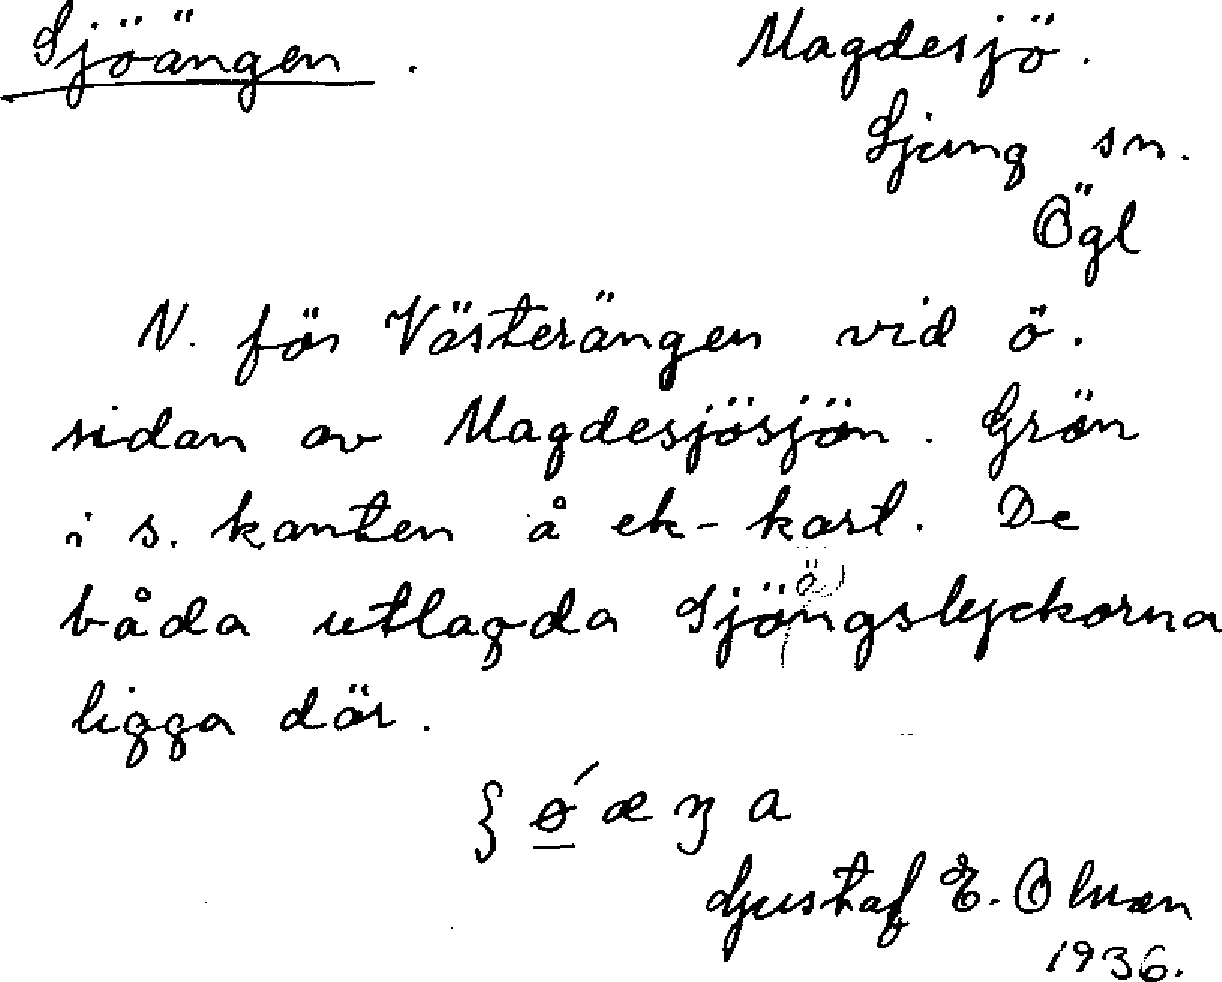 Sjöängen. Magdesjö.
Ljung sn.
Ögl
N. för Västerängen vid ö.
sidan av Magdesjösjön. Grön
i s. kanten å ek-kart. De
båda utlagda Sjöängslyckorna
ligga där.
Gustaf E.
1936.